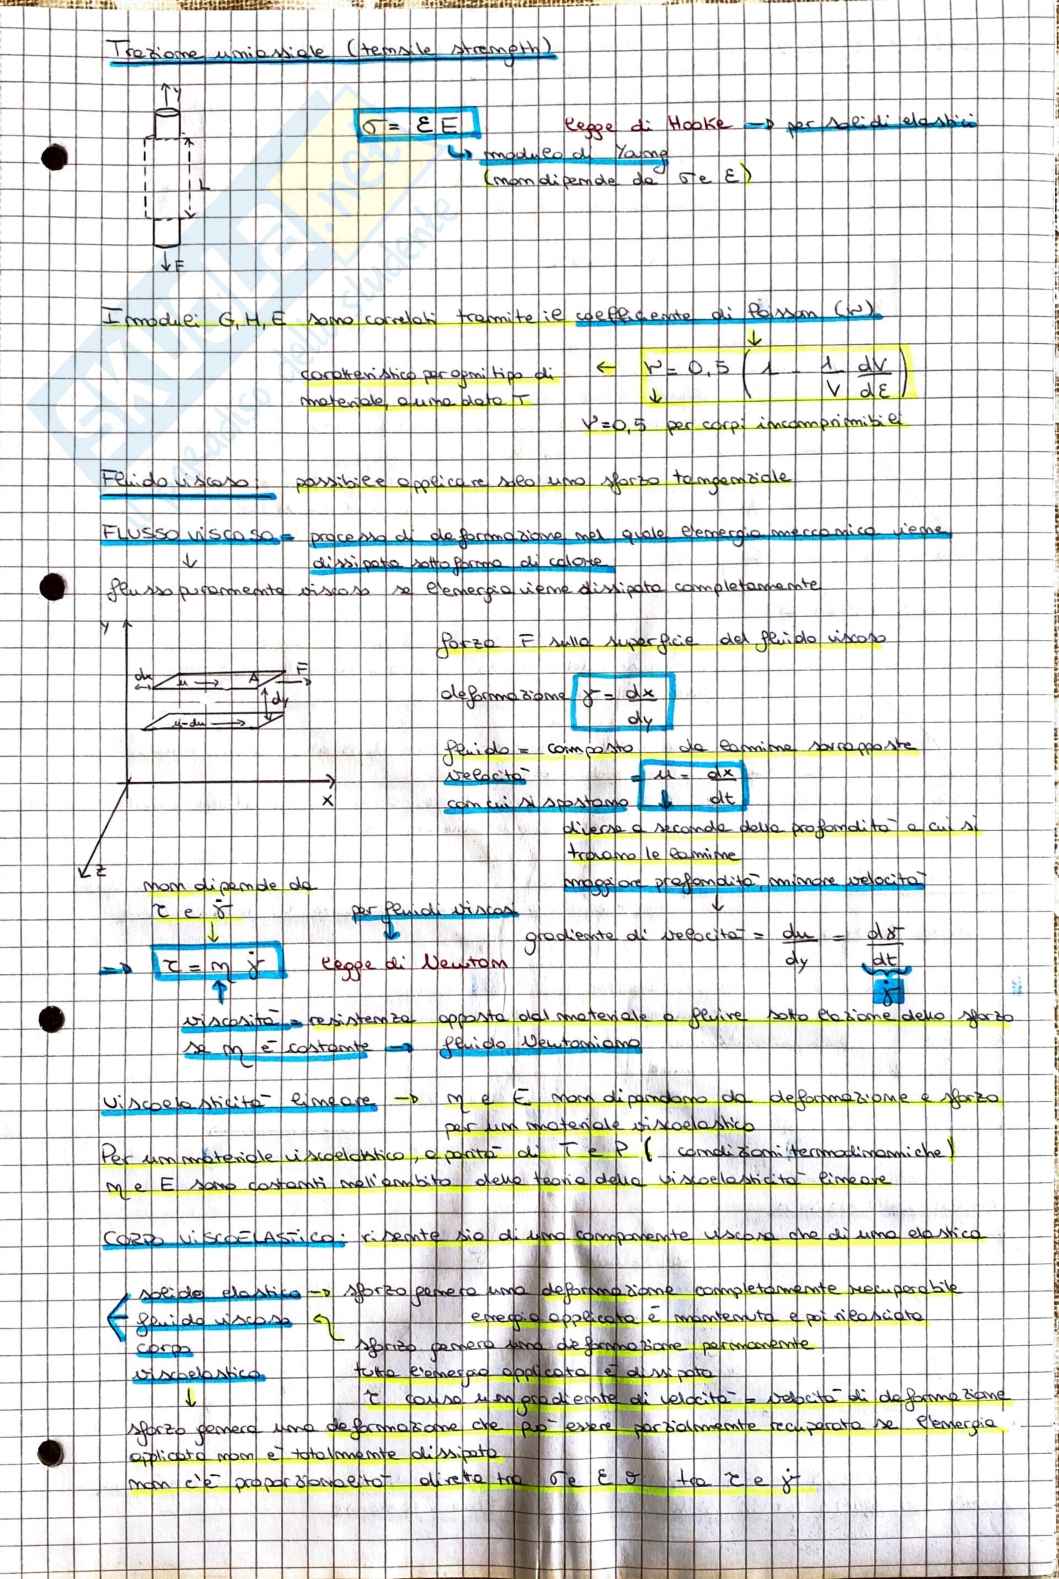 Trazione uniassiale (tensile strength)
Y
L
F
σ = ε E
legge di Hooke → per solidi elastici
↳ modulo di Young
(non dipende da σ e ε)
I moduli G, H, E sono correlati tramite il coefficiente di Poisson (ν)
caratteristico per ogni tipo di ← ν = 0,5 (1 - 1/V dV/dε)
materiale, a una data T
ν=0,5 per corpi incomprimibili
Fluido viscoso: possibile applicare solo uno sforzo tangenziale
FLUSSO VISCOSO = processo di deformazione nel quale l'energia meccanica viene
dissipata sotto forma di calore
flusso puramente viscoso se l'energia viene dissipata completamente
Y
dx u → A F
dy
u-du →
X
Z
forza F sulla superficie del fluido viscoso
deformazione γ = dx/dy
fluido = composto da lamine sovrapposte
velocità = u = dx/dt
con cui si spostano
diversa a seconda della profondità a cui si
trovano le lamine
maggiore profondità, minore velocità
gradiente di velocità = du/dy = dγ/dt
γ̇
non dipende da
τ e γ̇
per fluidi viscosi
→ τ = η γ̇ legge di Newton
viscosità = resistenza opposta dal materiale a fluire sotto l'azione dello sforzo
se η è costante → fluido Newtoniano
viscoelasticità lineare → η e E non dipendono da deformazione e sforzo
per un materiale viscoelastico
Per un materiale viscoelastico, a parità di T e P (condizioni termodinamiche)
η e E sono costanti nell'ambito della teoria della viscoelasticità lineare
CORPO VISCOELASTICO: risente sia di una componente viscosa che di una elastica
solido elastico → sforzo genera una deformazione completamente recuperabile
energia applicata è mantenuta e poi rilasciata
fluido viscoso
sforzo genera una deformazione permanente
tutta l'energia applicata è dissipata
τ causa un gradiente di velocità = velocità di deformazione
corpo
viscoelastico
sforzo genera una deformazione che può essere parzialmente recuperata se l'energia
applicata non è totalmente dissipata
non c'è proporzionalità diretta tra σ e ε o tra τ e γ̇
SKUOLA.net
dello studente